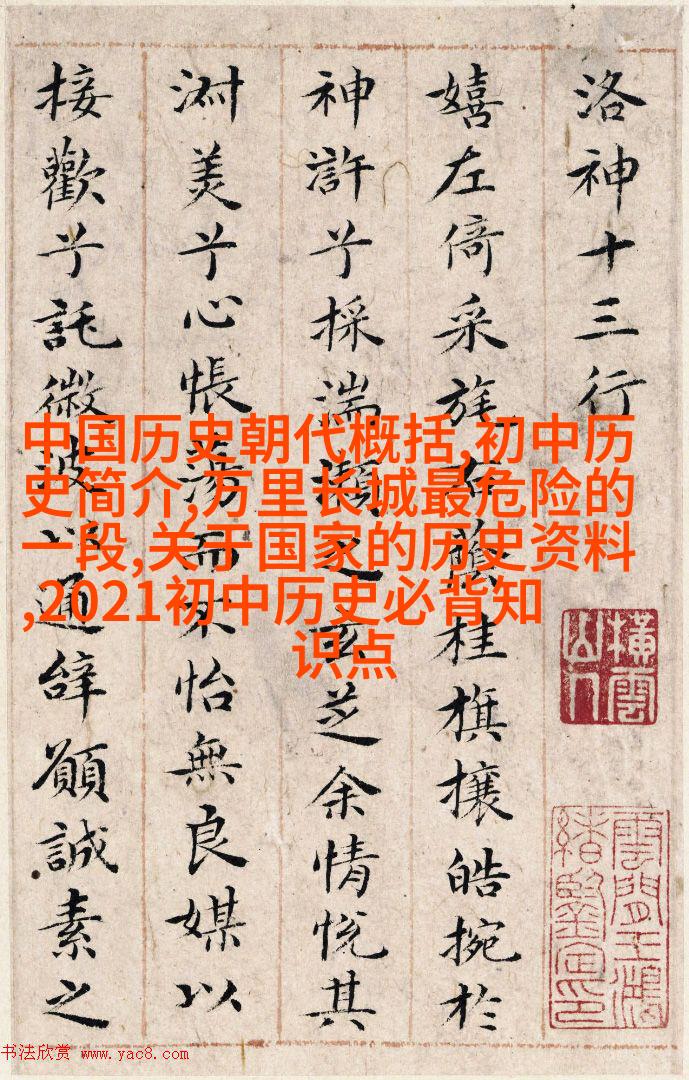 洛神十三行
嬉左倚采旄右蔭桂旗攘皓捥於
神滸兮採湍瀨之玄芝余情悅其
淑美兮心蕩而不怡無良媒以
接歡兮託微波以通辭願誠素之
中国历史朝代概括,初中历
史简介,万里长城最危险的
一段,关于国家的历史资料
,2021初中历史必背知
识点
书法欣赏 www.yac8.com